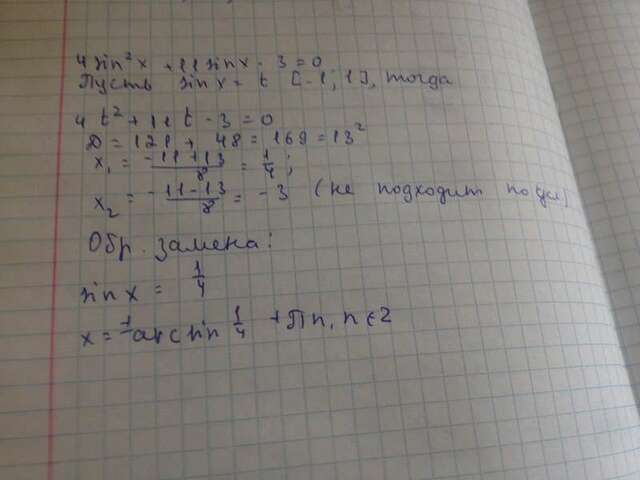 4 sin²x + 11 sinx - 3 = 0
Пусть sinx = t [-1; 1], тогда
4t² + 11t - 3 = 0
D = 121 + 48 = 169 = 13²
x₁ = (-11+13)/8 = 1/4;
x₂ = (-11-13)/8 = -3 (не подходит по усл)
Обр. замена:
sin x = 1/4
x = ⁻¹arcsin 1/4 + Πn, n∈Z